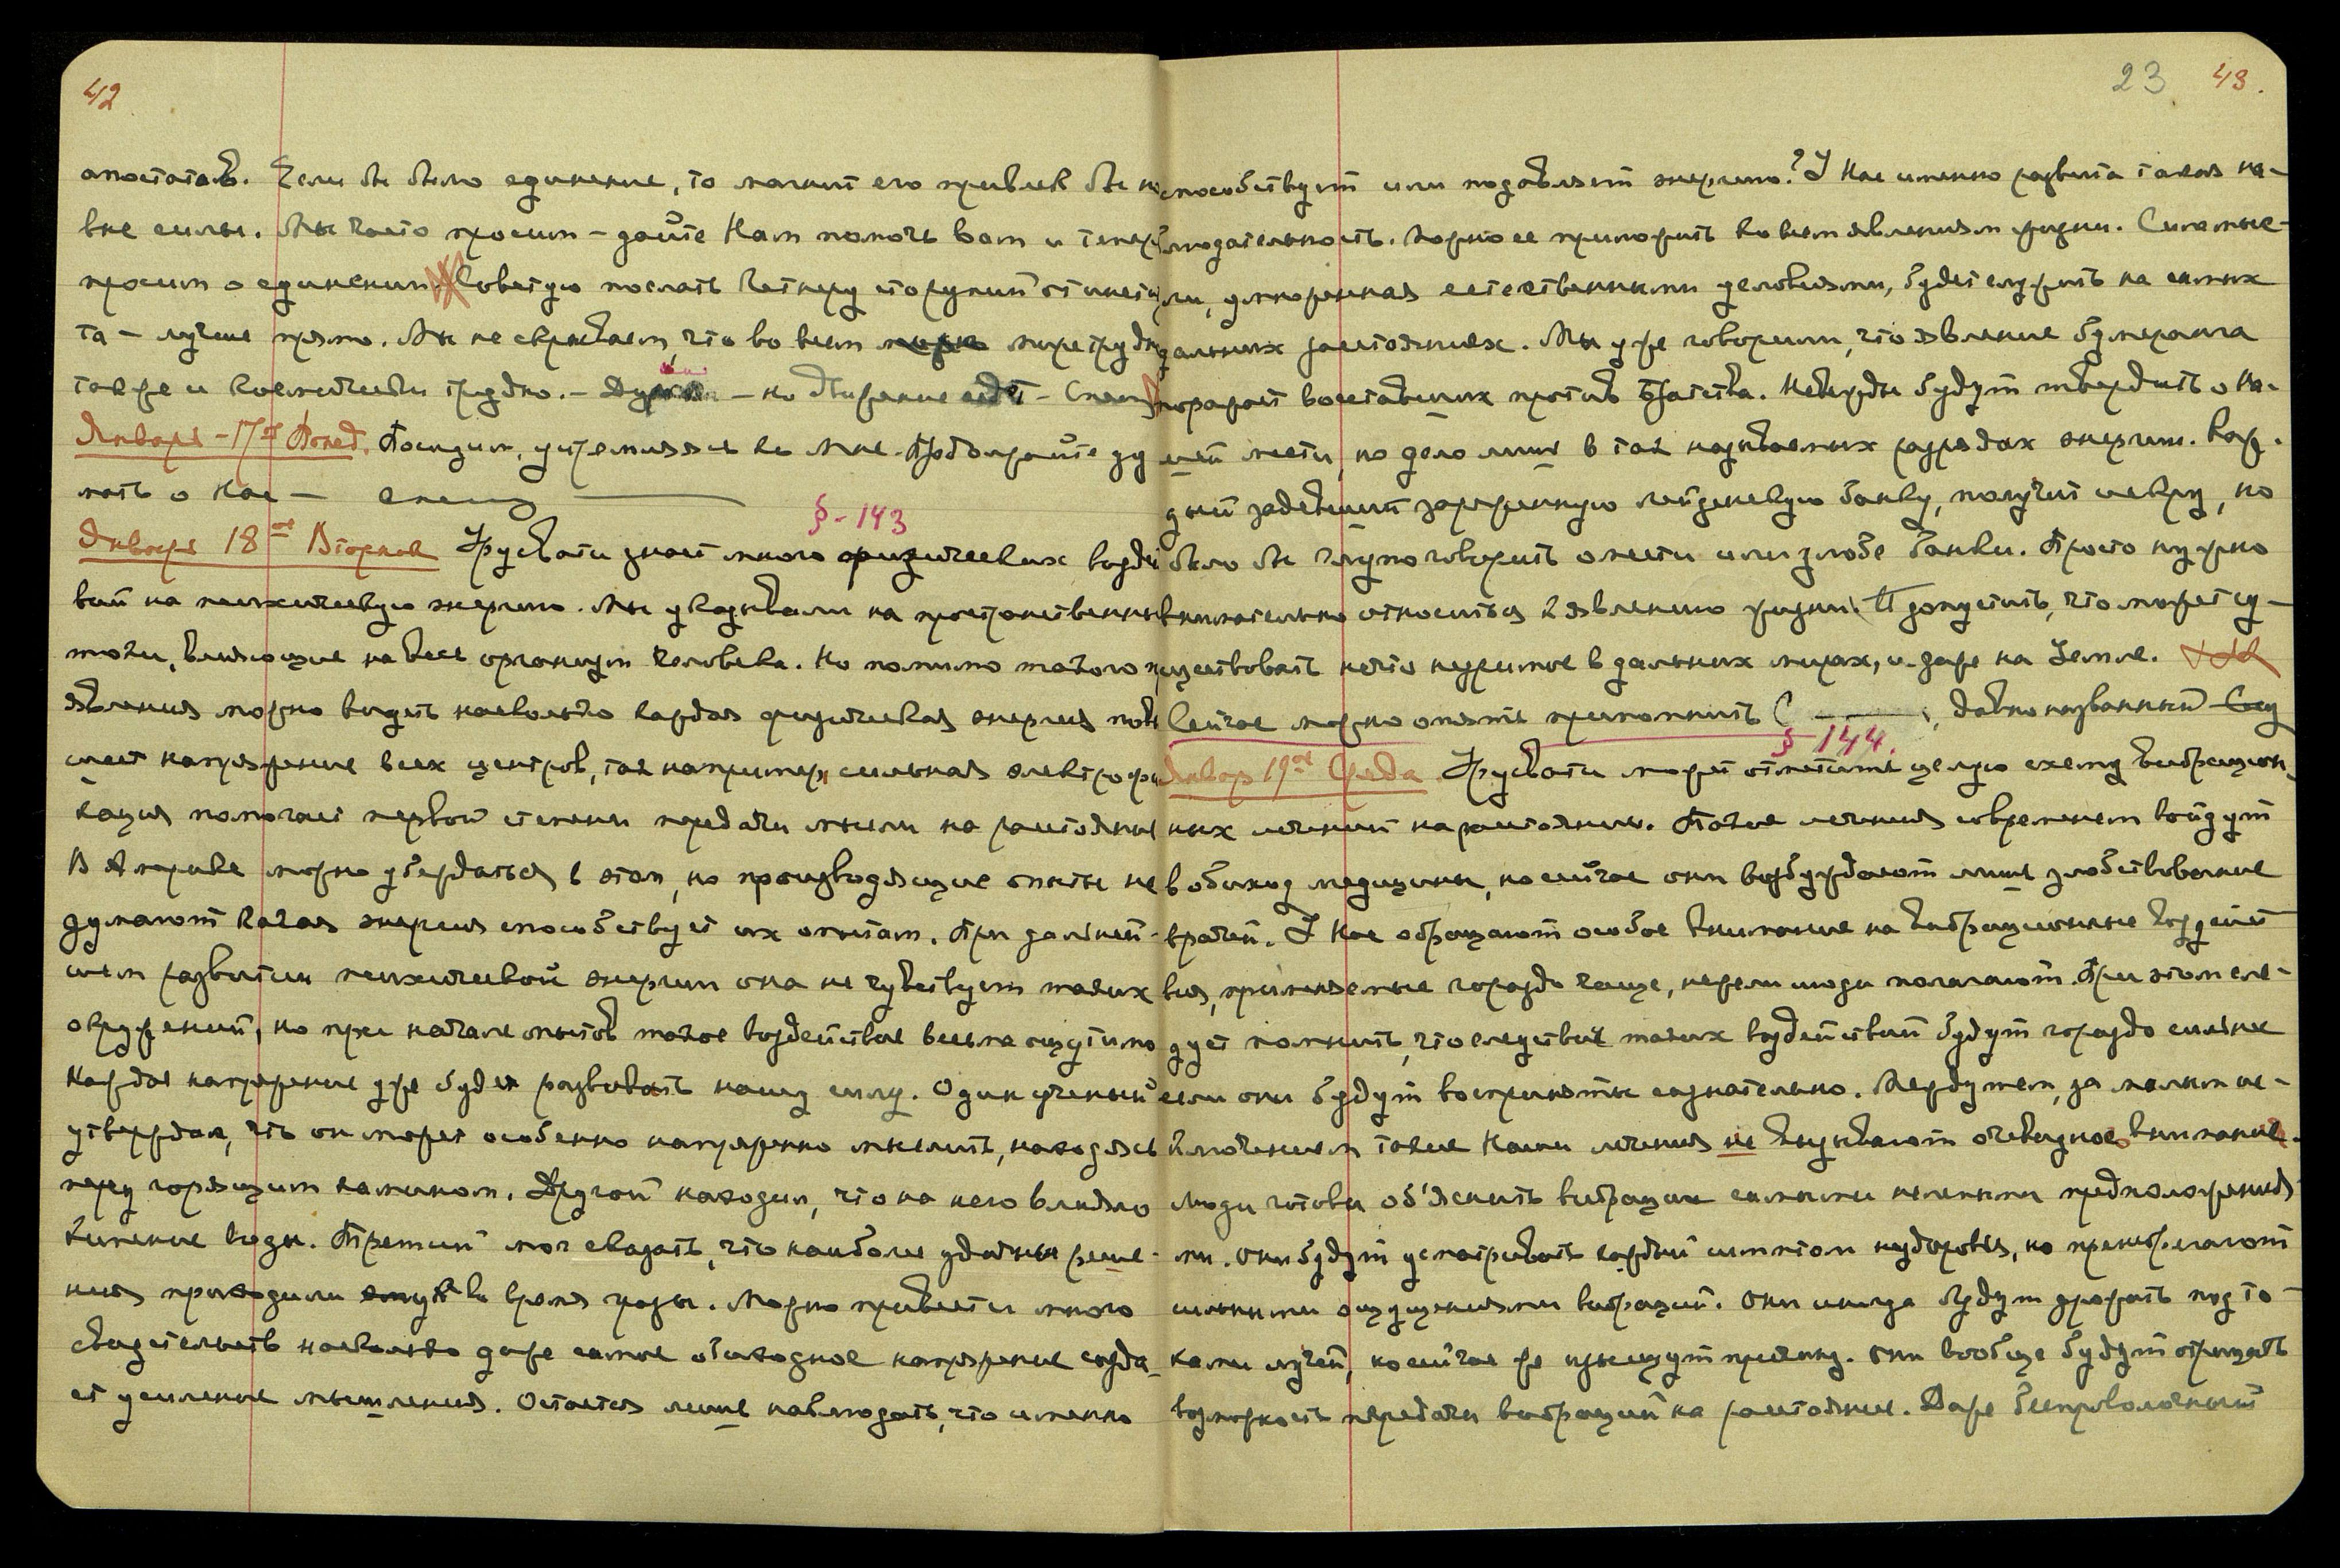 42
апостатов. Если бы было единение, то магнит его привлек бы но
вые силы. Мы часто просим – дайте Нам помочь вам и теперь
просим о единении. Советую послать
та – лучше прямо. Мы не скрываем, что во всем мире трудно
также и космически трудно. – – но движение идет – Спешу
Января – 17го Понед. Посидим, устремляясь ко Мне. Продолжайте ду
мать о Нас – спешу
§ - 143
Января 18го Вторник Урусвати знает много физических воздей
вий на психическую энергию. Мы указывали на пространственные
токи, влияющие на весь организм человека. Но помимо такого про
явления можно видеть насколько каждая физическая энергия повы
шает напряжение всех центров, так например, сильная электрофи
кация помогает первой степени передачи мысли на расстояние
В Америке можно убедиться в этом, но производящие опыты не
думают какая энергия способствует их опытам. При дальней-
шем развитии психической энергии она не чувствует таких
окружений, но при начале опытов такое воздействие весьма ощутимо
Каждое напряжение уже будет развивать нашу силу. Один ученый
утверждал, что он может особенно напряженно мыслить, находясь
перед горящим камином. Другой находил, что на него влияло
кипение воды. Третий мог сказать, что наиболее удачные реше-
ния приходили ему в во время грозы. Можно привести много
свидетельств насколько даже самое обиходное напряжение созда-
ет усиление мышления. Остается лишь наблюдать, что именно
23 43.
способствует или подавляет энергию? У Нас именно развита такая на-
блюдательность. Можно ее приложить ко всем явлениям жизни. Сила мыс-
ли, умноженная естественными условиями, будет служить на самых
дальних расстояниях. Мы уже говорили, что явление бумеранга
поражает восставших против Братства. Невежды будут твердить о На-
шей мести, но дело лишь в так называемых разрядах энергии. Каж-
дый задевший заряженную лейденскую банку, получит искру, но
было бы глупо говорить о мести или злобе банки. Просто нужно
внимательно относиться к явлению жизни. И допустить, что может су-
ществовать нечто незримое в дальних мирах, и даже на Земле.
Сейчас можно опять припомнить С , давно названный
§ 144.
Январ 19го Среда Урусвати может отметить целую схему вибрацион
ных лечений на расстоянии. Такое лечения современем войдут
в обиход медицины, но сейчас они возбуждают лишь злобствование
врачей. У Нас обращают особое внимание на вибрационные воздейст
вия, применяемые гораздо чаще, нежели люди полагают. При этом сле-
дует помнить, что следствие таких воздействий будут гораздо сильнее
если они будут восприняты сознательно. Между тем, за малым ис-
ключением такие Наши лечения не вызывают очевидное внимание.
Люди готовы об'яснить вибрации самыми нелепыми предположения
ми. Они будут усматривать каждый симптом нездоровья, но пренебрегают
сильными ощущениями вибраций. Они иногда будут дрожать под то-
ками лучей, но сейчас же изыщут причину. Они вообще будут отрицать
возможность передачи вибраций на расстояние. Даже беспроволочный